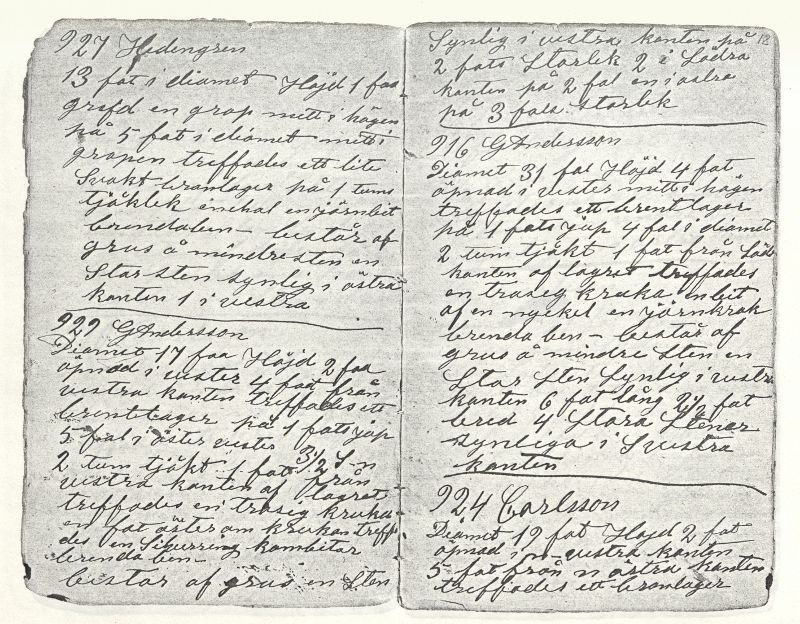 927 Hedengren
13 fat i diamet Höjd 1 faa
grafd en grop mitt i högen
på 5 fat i diamet mitt i
gropen treffades ett lite
Svakt branlager på 1 tums
tjöklek enehal en jörnbit
brendaben - består af
grus å mindre sten en
Starsten synlig i östra
kanten 1 i vestra
929 GAndersson
Diamet 17 faa Höjd 2 faa
öpnad i vester 4 fat från
vestra kanten treffades ett
brentlager på 1 fats jup
5 fal i öster vester 3½ S n
2 tum tjökt 1 fats från
vestra kanten af lagret
treffades en trasig kruka
en fat öster om krukan treff
des en Siburring kambitar
brenda ben -
bestar af grus en Sten
Synlig i vestra kanten på 12
2 fats Starlek 2 i Södra
kanten på 2 fal en i östra
på 3 fals. Starlek
916 GAndersson
Diamet 31 fat Höjd 4 fat
öpnad i vester mitt i högen
treffades ett brentlager
på 1 fats jup 4 fal i diamet
2 tum tjökt 1 fat från Söd
kanten af lagret treffades
en trasig kruka en bit
af en nyckel en jörnkrok
brenda ben - består af
grus å mindre Sten en
Stor Sten Synlig i vestra
kanten 6 fat lång 2½ fat
bred 4 Stora Stenar
synliga i S vestra
kanten
924 Carlsson
Diamet 19 fat Höjd 2 fat
öpnad i n-vestra kanten
5 fat från n östra kanten
treffades ett branlager